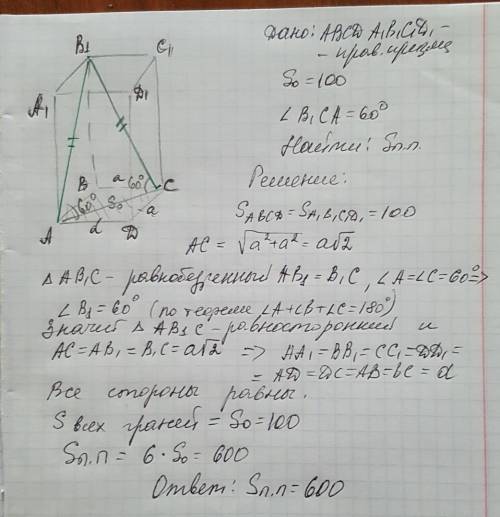 Дано: ABCD A₁B₁C₁D₁ -
- прав. призма
S₀ = 100
∠B₁CA = 60°
Найти: Sп.п.
Решение:
B₁
C₁
A₁
D₁
B
a
60°
C
60°
S₀
a
A
a
D
SABCD = SA₁B₁C₁D₁ = 100
AC = √a²+a² = a√2
△ AB₁C - равнобедренный AB₁ = B₁C, ∠A=∠C=60° =>
∠B₁ = 60° (по теореме ∠A+∠B+∠C=180°)
Значит △ AB₁C - равносторонний и
AC = AB₁ = B₁C = a√2 => AA₁ = BB₁ = CC₁ = DD₁ =
= AD = DC = AB = BC = a
Все стороны равны.
S всех граней = S₀ = 100
Sп.п = 6 · S₀ = 600
Ответ: Sп.п = 600